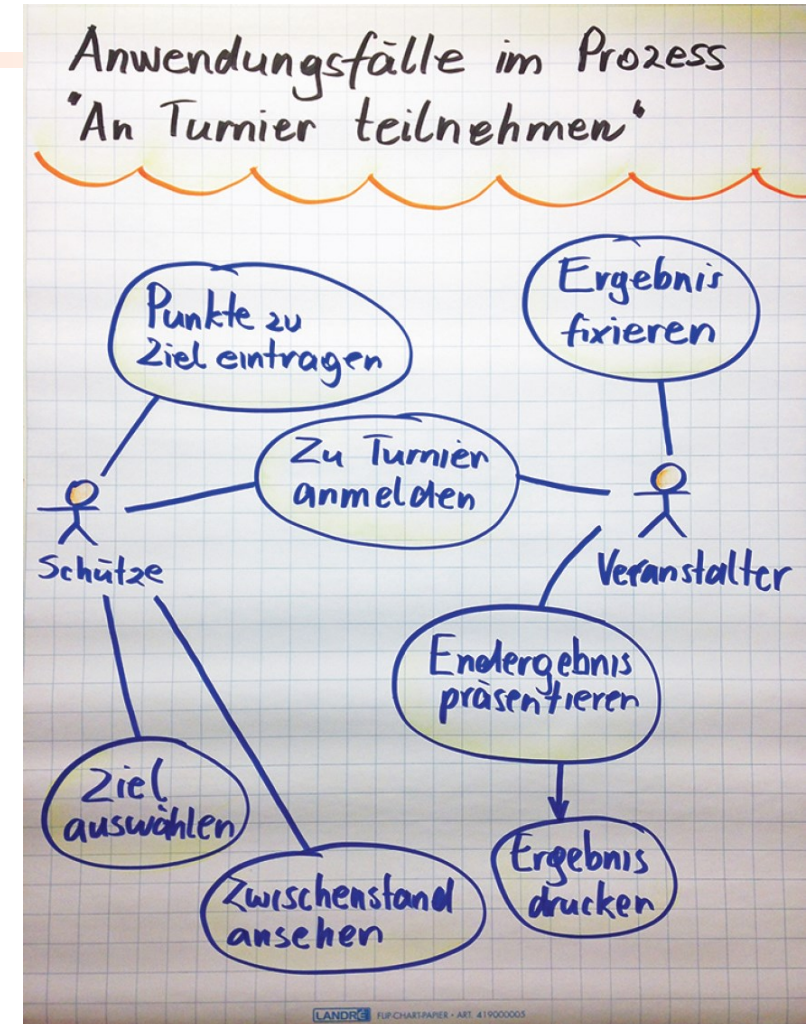 Anwendungsfälle im Prozess
"An Turnier teilnehmen"
Punkte zu
Ziel eintragen
Ergebnis
fixieren
Zu Turnier
anmelden
Schütze
Veranstalter
Endergebnis
präsentieren
Ziel
auswählen
Zwischenstand
ansehen
Ergebnis
drucken
LANDRÉ FLIPCHARTPAPIER • ART. 419000005